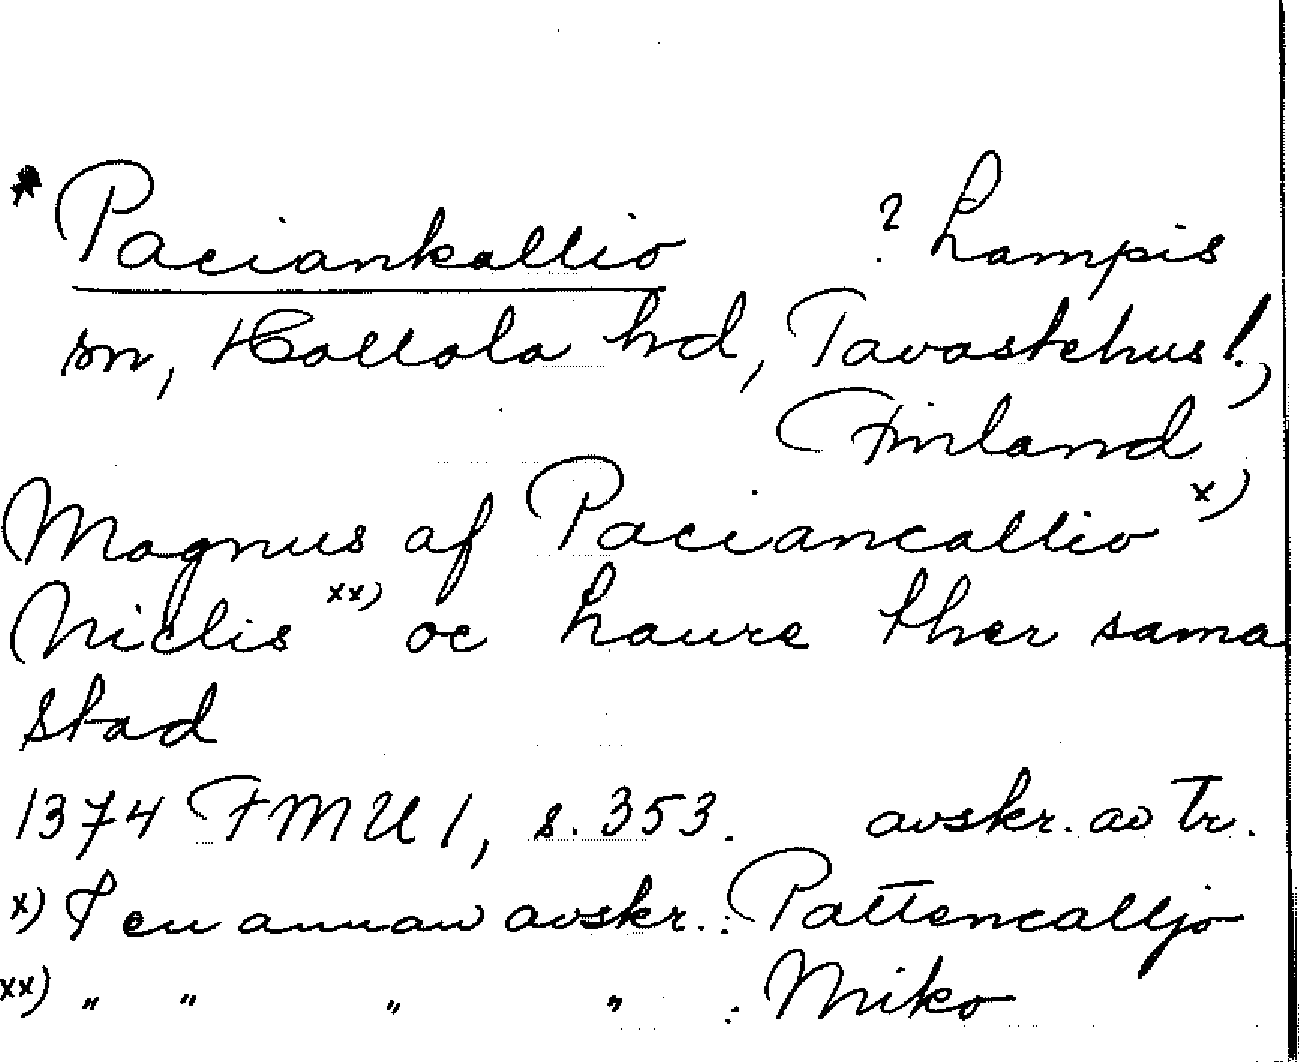 * Paciankallio ? Lampis
sn, Hollola hd, Tavastehus l.,
Finland
Magnus af Paciancallio x)
Niclis xx) oc haure ther sama
stad
1374 FMU 1, s. 353. avskr. av Tr.
x) I en annan avskr.: Pattencalljo
xx) " " " " : Miko